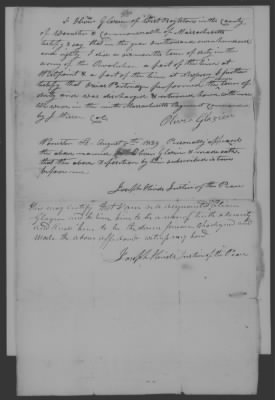 I Oliver Glazier of West Boylston in the County
of Worcester & Commonwealth of Massachusetts
testify & say that in the year one thousand seven hundred
and eighty I did a summer tour of duty in the
army of the Revolution a part of the time at
Westpoint & a part of the time at & further
testify that performed the same tour of
duty and was discharged & returned home with me
we were in the ninth Massachusetts Regiment commanded
by J.
Oliver Glazier
Worcester Ss. August 9th 1839 Personally appeared
the above named Oliver Glazier & made oath
that the above deposition by him subscribed is true
before me
Joseph Hinds Justice of the Peace
This may certify that I am well acquainted
Glazier and him to be a man of truth & veracity
and know him to be the person who signed and
made the above affidavit witness my hand
Joseph Hinds Justice of the Peace